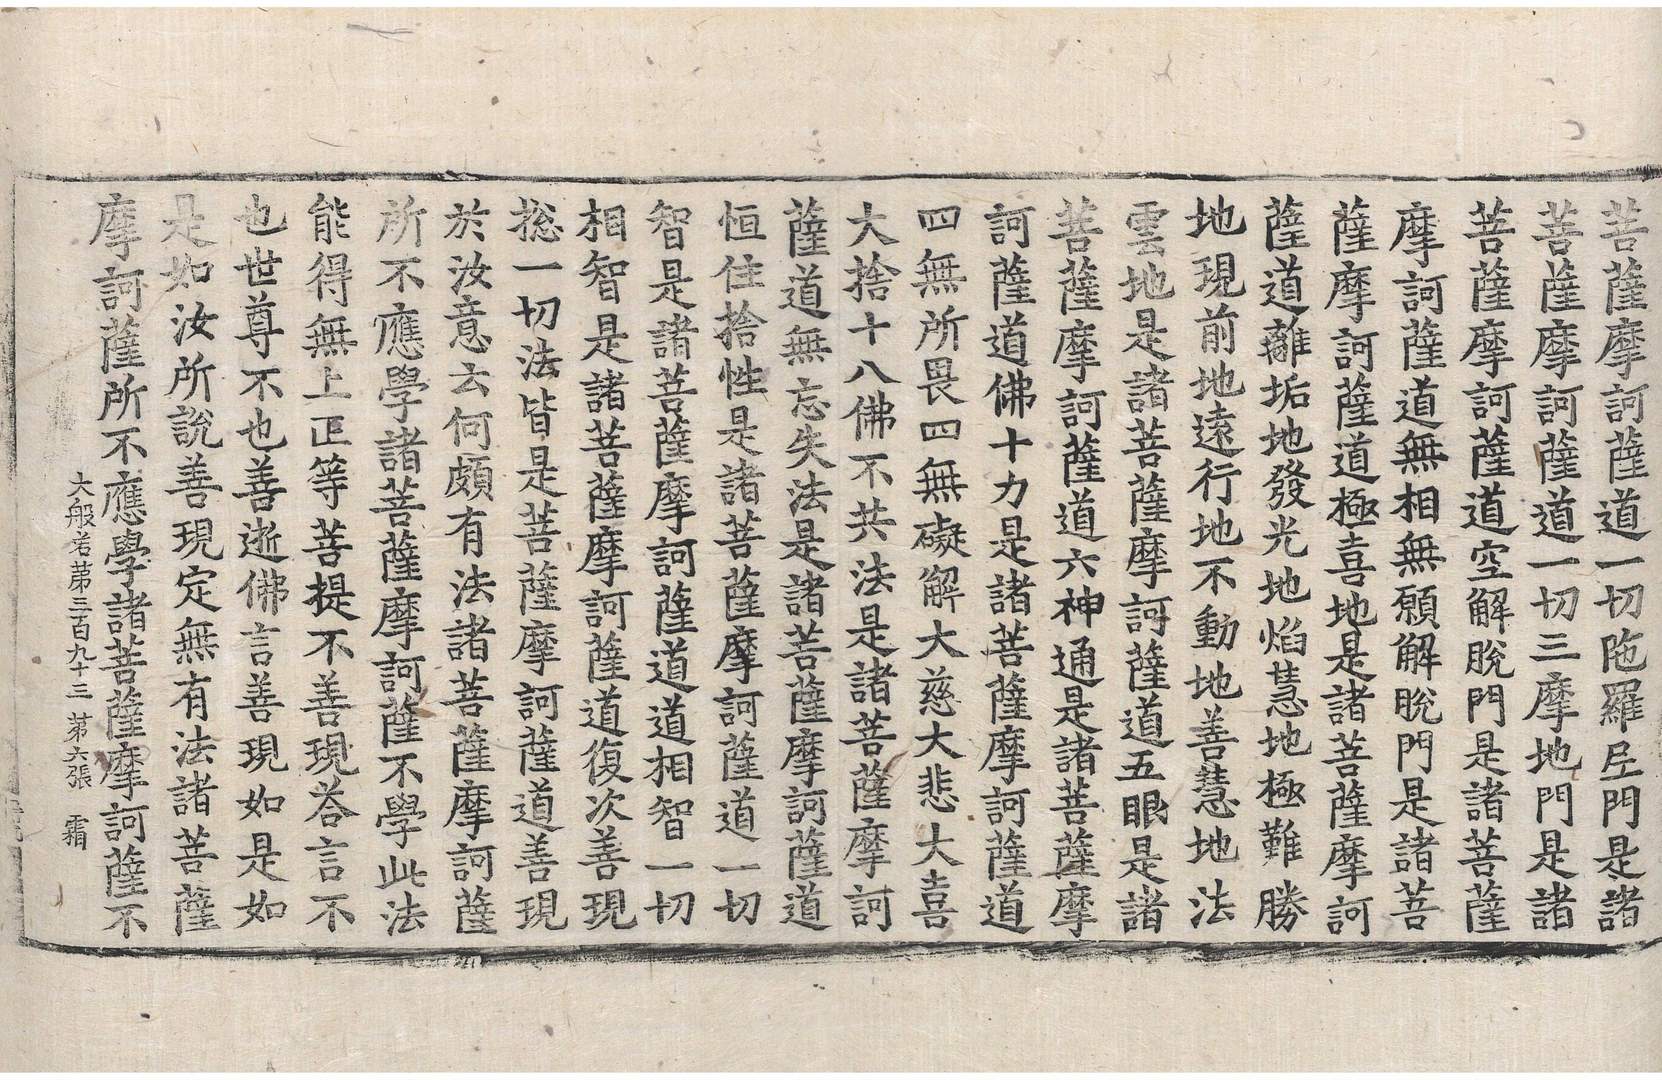 菩薩摩訶薩道一切陁羅尼門是諸
菩薩摩訶薩道一切三摩地門是諸
菩薩摩訶薩道空解脫門是諸菩薩
摩訶薩道無相無願解脫門是諸菩
薩摩訶薩道極喜地是諸菩薩摩訶
薩道離垢地發光地焰慧地極難勝
地現前地遠行地不動地善慧地法
雲地是諸菩薩摩訶薩道五眼是諸
菩薩摩訶薩道六神通是諸菩薩摩
訶薩道佛十力是諸菩薩摩訶薩道
四無所畏四無礙解大慈大悲大喜
大捨十八佛不共法是諸菩薩摩訶
薩道無忘失法是諸菩薩摩訶薩道
恒住捨性是諸菩薩摩訶薩道一切
智是諸菩薩摩訶薩道道相智一切
相智是諸菩薩摩訶薩道復次善現
捴一切法皆是菩薩摩訶薩道善現
於汝意云何頗有法諸菩薩摩訶薩
所不應學諸菩薩摩訶薩不學此法
能得無上正等菩提不善現荅言不
也世尊不也善逝佛言善現如是如
是如汝所說善現定無有法諸菩薩
摩訶薩所不應學諸菩薩摩訶薩不
大般若第三百九十三 第六張 霜